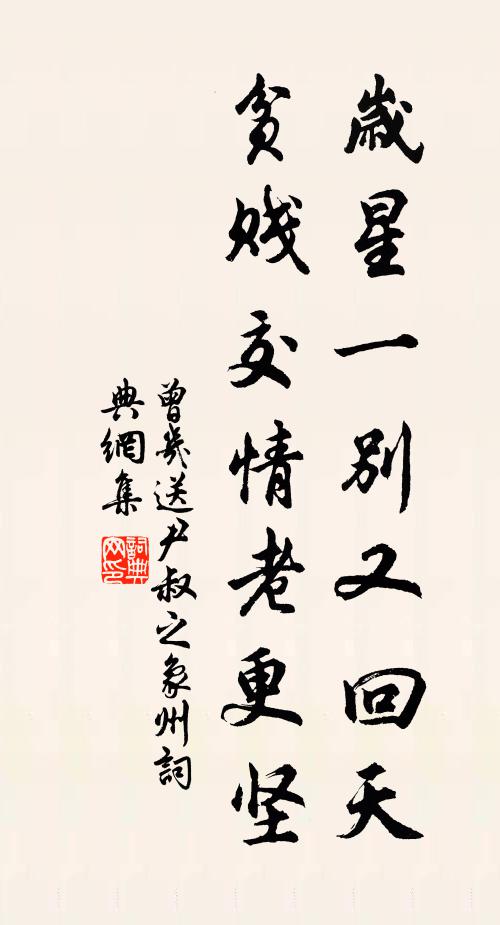 歲星一別又回天
貧賤交情老更坚
曾幾送尹叔之象州詞
典網集
詞典
网印